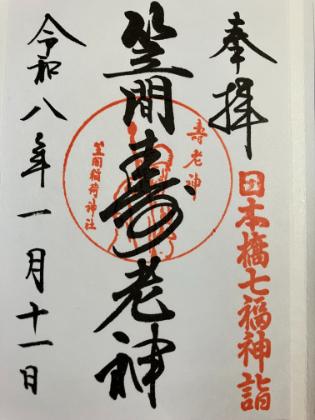 奉拝
日本橋七福神詣
笠間寿老神
壽老神
笠間稲荷神社
令和八年一月十一日